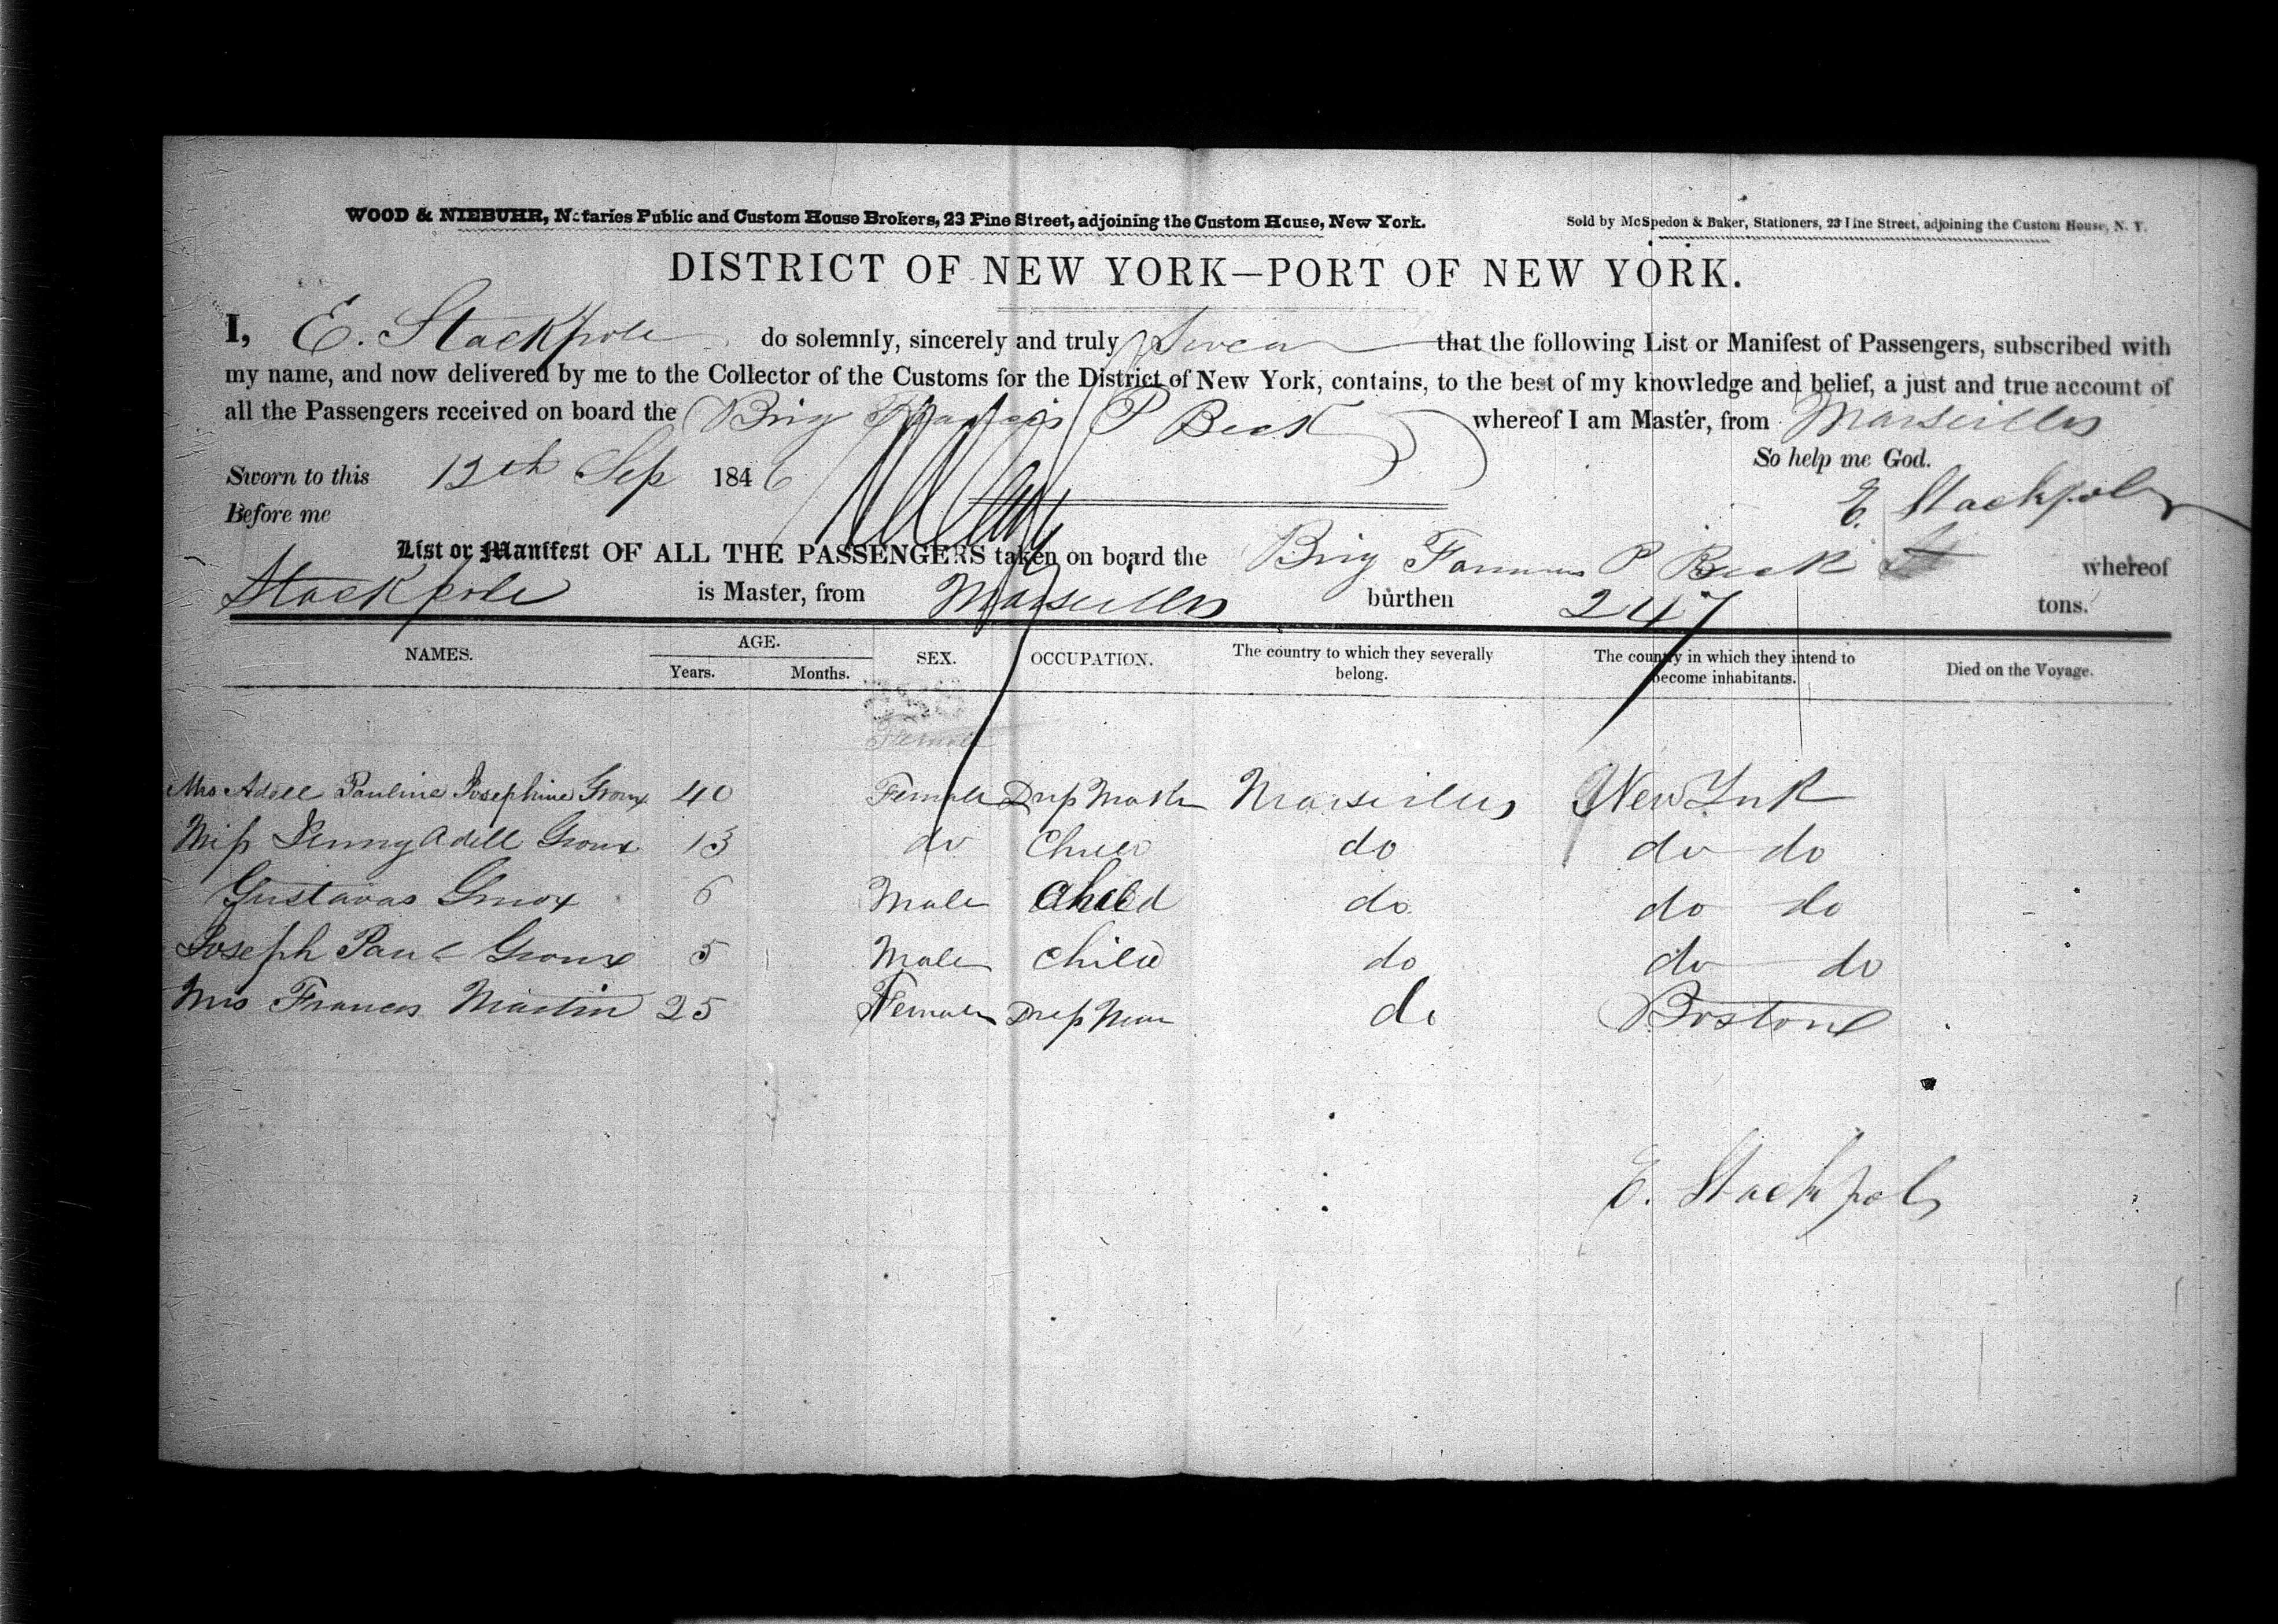 WOOD & NIEBUHR, Notaries Public and Custom House Brokers, 23 Pine Street, adjoining the Custom House, New York.
Sold by McSpedon & Baker, Stationers, 23 Pine Street, adjoining the Custom House, N. Y.
DISTRICT OF NEW YORK—PORT OF NEW YORK.
I, E. Stackpole do solemnly, sincerely and truly Swear that the following List or Manifest of Passengers, subscribed with
my name, and now delivered by me to the Collector of the Customs for the District of New York, contains, to the best of my knowledge and belief, a just and true account of
all the Passengers received on board the Brig Francis P Beck whereof I am Master, from Marseilles
So help me God.
Sworn to this 12th Sep 1846
E. Stackpole
Before me
List or Manifest OF ALL THE PASSENGERS taken on board the Brig P Beck whereof
Stackpole is Master, from Marseilles burthen 247 tons.
NAMES. AGE. SEX. OCCUPATION. The country to which they severally belong. The country in which they intend to become inhabitants. Died on the Voyage.
Years. Months.
Female
Mrs Adell Pauline Josephine Groux 40 Female Dress Maker Marseilles New York
Miss Jenny Adell Groux 13 do Child do do do
Gustavas Groux 6 Male Child do do do
Joseph Paul Groux 5 Male Child do do do
Mrs Frances Martin 25 Female Dress do Boston
E. Stackpole